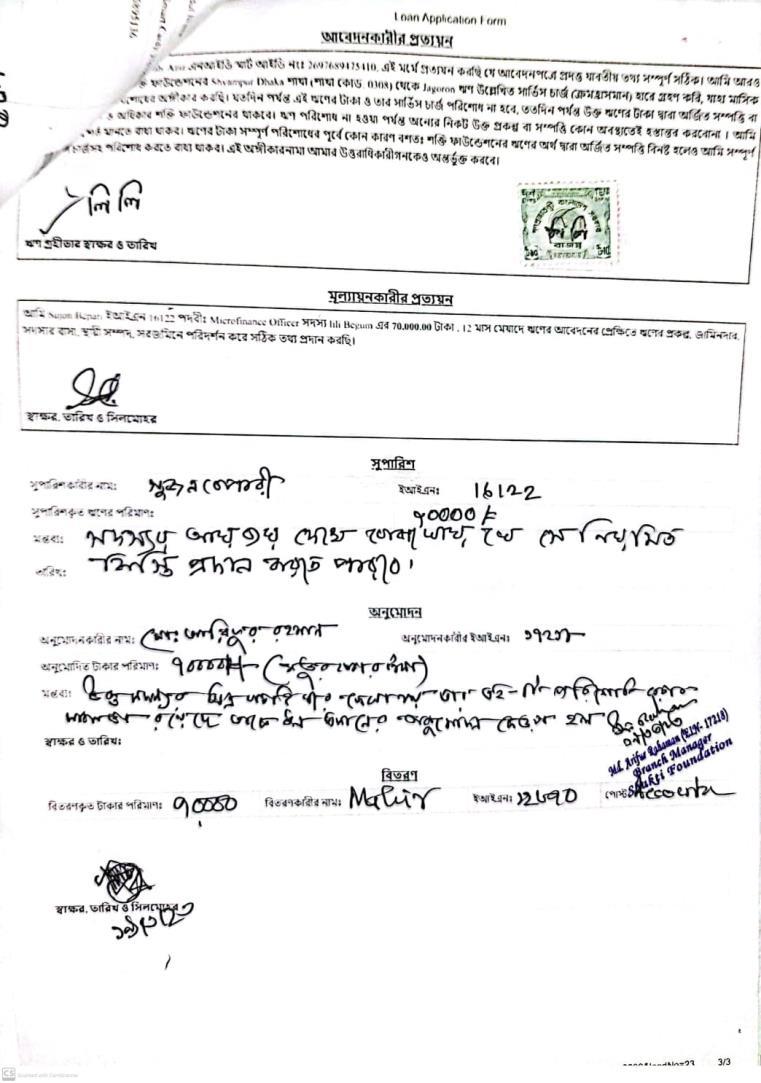 Loan Application Form
আবেদনকারীর প্রত্যয়ন
এনআইডি স্মার্ট আইডি নংঃ 2697689475410, এই মর্মে প্রত্যয়ন করছি যে আবেদনপত্রে প্রদত্ত যাবতীয় তথ্য সম্পূর্ণ সঠিক। আমি আরও
ফাউন্ডেশনের Shyampur Dhaka শাখা (শাখা কোড. 0308) থেকে Jagoron ঋণ উল্লেখিত সার্ভিস চার্জ (ক্রমহ্রাসমান) হারে গ্রহণ করি, যাহা মাসিক
অঙ্গীকার করছি। যতদিন পর্যন্ত এই ঋণের টাকা ও তার সার্ভিস চার্জ পরিশোধ না হবে, ততদিন পর্যন্ত উক্ত ঋণের টাকা দ্বারা অর্জিত সম্পত্তি বা
অধিকার শক্তি ফাউন্ডেশনের থাকবে। ঋণ পরিশোধ না হওয়া পর্যন্ত অন্যের নিকট উক্ত প্রকল্প বা সম্পত্তি কোন অবস্থাতেই হস্তান্তর করবোনা । আমি
মানতে বাধ্য থাকব। ঋণের টাকা সম্পূর্ণ পরিশোধের পূর্বে কোন কারণ বশতঃ শক্তি ফাউন্ডেশনের ঋণের অর্থ দ্বারা অর্জিত সম্পত্তি বিনষ্ট হলেও আমি সম্পূর্ণ
পরিশোধ করতে বাধ্য থাকব। এই অঙ্গীকারনামা আমার উত্তরাধিকারীগনকেও অন্তর্ভুক্ত করবে।
লিলি
লিলি
ঋণ গ্রহীতার স্বাক্ষর ও তারিখ
মূল্যায়নকারীর প্রত্যয়ন
আমি Sujon Bepari ইআইএন 16122 পদবীঃ Microfinance Officer সদস্য lili Begum এর 70,000.00 টাকা , 12 মাস মেয়াদে ঋণের আবেদনের প্রেক্ষিতে ঋণের প্রকল্প, জামিনদার,
সদস্যর বাসা, স্থায়ী সম্পদ, সরজমিনে পরিদর্শন করে সঠিক তথ্য প্রদান করছি।
স্বাক্ষর, তারিখ ও সিলমোহর
সুপারিশ
সুপারিশকারীর নামঃ সুজন বেপারী ইআইএনঃ 16122
সুপারিশকৃত ঋণের পরিমাণঃ ৭0000/=
মন্তব্যঃ সদস্যর আয় ব্যয় দেখে বোঝা যায়, যে সে নিয়মিত
তারিখঃ কিস্তি প্রদান করতে পারবে।
অনুমোদন
অনুমোদনকারীর নামঃ মোঃ আরিফুর রহমান অনুমোদনকারীর ইআইএনঃ ১৭২১৮
অনুমোদিত টাকার পরিমাণঃ ৭০০০০/- (সত্তর হাজার টাকা)
মন্তব্যঃ উক্ত সদস্যের
স্বাক্ষর ও তারিখঃ
Md. Arifur Rahaman (EIN- 17218)
Branch Manager
Shakti Foundation
বিতরণ
বিতরণকৃত টাকার পরিমাণঃ ৭০০০০ বিতরণকারীর নামঃ ইআইএনঃ 12690 পোস্ট
স্বাক্ষর, তারিখ ও সিলমোহর
3/3
CS Scanned with CamScanner